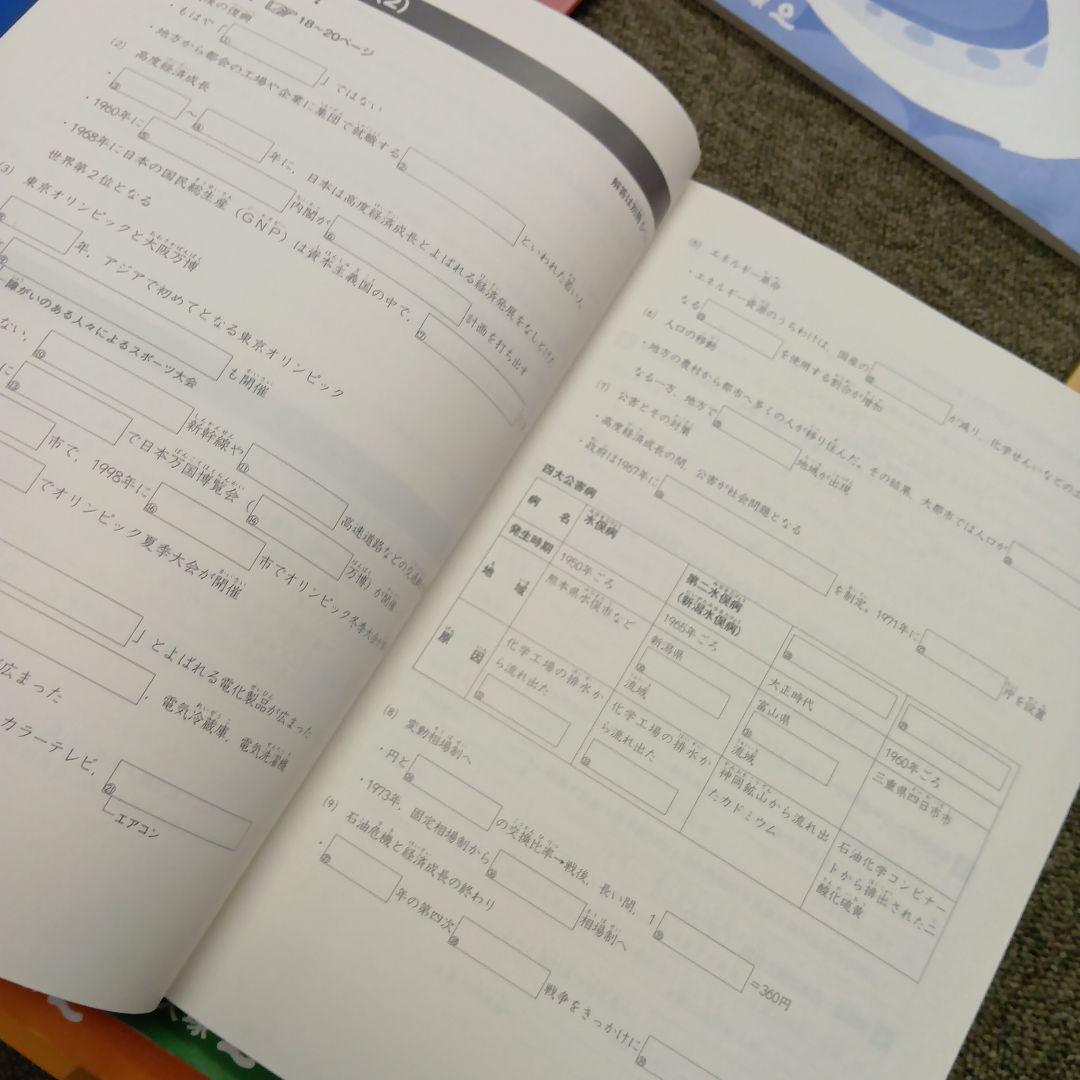 (2)
18～20ページ
・もはや「①」ではない
・地方から都会の工場や企業に集団で就職する②といわれた若い人
(2) 高度経済成長
・③～④年に、日本は高度経済成長とよばれる経済発展をなしとげた
・1960年に⑤内閣が⑥計画を打ち出す
・1968年に日本の国民総生産（GNP）は資本主義国の中で、⑦
世界第2位となる
(3) 東京オリンピックと大阪万博
年、アジアで初めてとなる東京オリンピック
障がいのある人々によるスポーツ大会
ない、⑩も開催
に⑫新幹線や⑪高速道路などの
で日本万国博覧会（⑭万博）が開催
市で、1998年に⑯市でオリンピック冬季大会が
でオリンピック夏季大会が開催
」とよばれる電化製品が広まった
、電気冷蔵庫、電気洗濯機
広まった
カラーテレビ、㉑
エアコン
解答は別冊
(5) エネルギー革命
・エネルギー資源のうちわけは、国産の が減り、化学せんいなどの
なる を使用する割合が増加
(6) 人口の移動
・地方の農村から都市へ多くの人が移り住んだ。その結果、大都市では人口が
なる一方、地方で 地域が出現
(7) 公害とその対策
・高度経済成長の間、公害が社会問題となる
・政府は1967年に を制定。1971年に 庁を設置
四大公害病
病名 水俣病 第二水俣病（新潟水俣病）
発生時期 1950年ごろ 1965年ごろ 大正時代 1960年ごろ
地域 熊本県水俣市など 新潟県 流域 富山県 流域 三重県四日市市
原因 化学工場の排水から流れ出た 化学工場の排水から流れ出た 神岡鉱山から流れ出たカドミウム 石油化学コンビナートから排出された二酸化硫黄
(8) 変動相場制へ
・円と の交換比率→戦後、長い間、1 ＝360円
・1973年、固定相場制から 相場制へ
(9) 石油危機と経済成長の終わり
・ 年の第四次 戦争をきっかけに